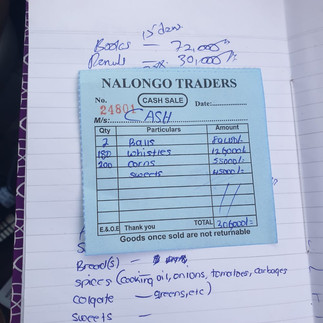 Books — 72,000/=
30,000/=
NALONGO TRADERS
No. 24801 CASH SALE Date:
M/s: CASH
Qty Particulars Amount
2 Balls
180 whistles 126000/-
200 corns 55000/-
sweets 45000/-
E.&O.E Thank you TOTAL 306000/-
Goods once sold are not returnable
Bread(s) —
spices (cooking oil, onions, tomatoes, cabbages
colgate — greens, etc)
sweets —